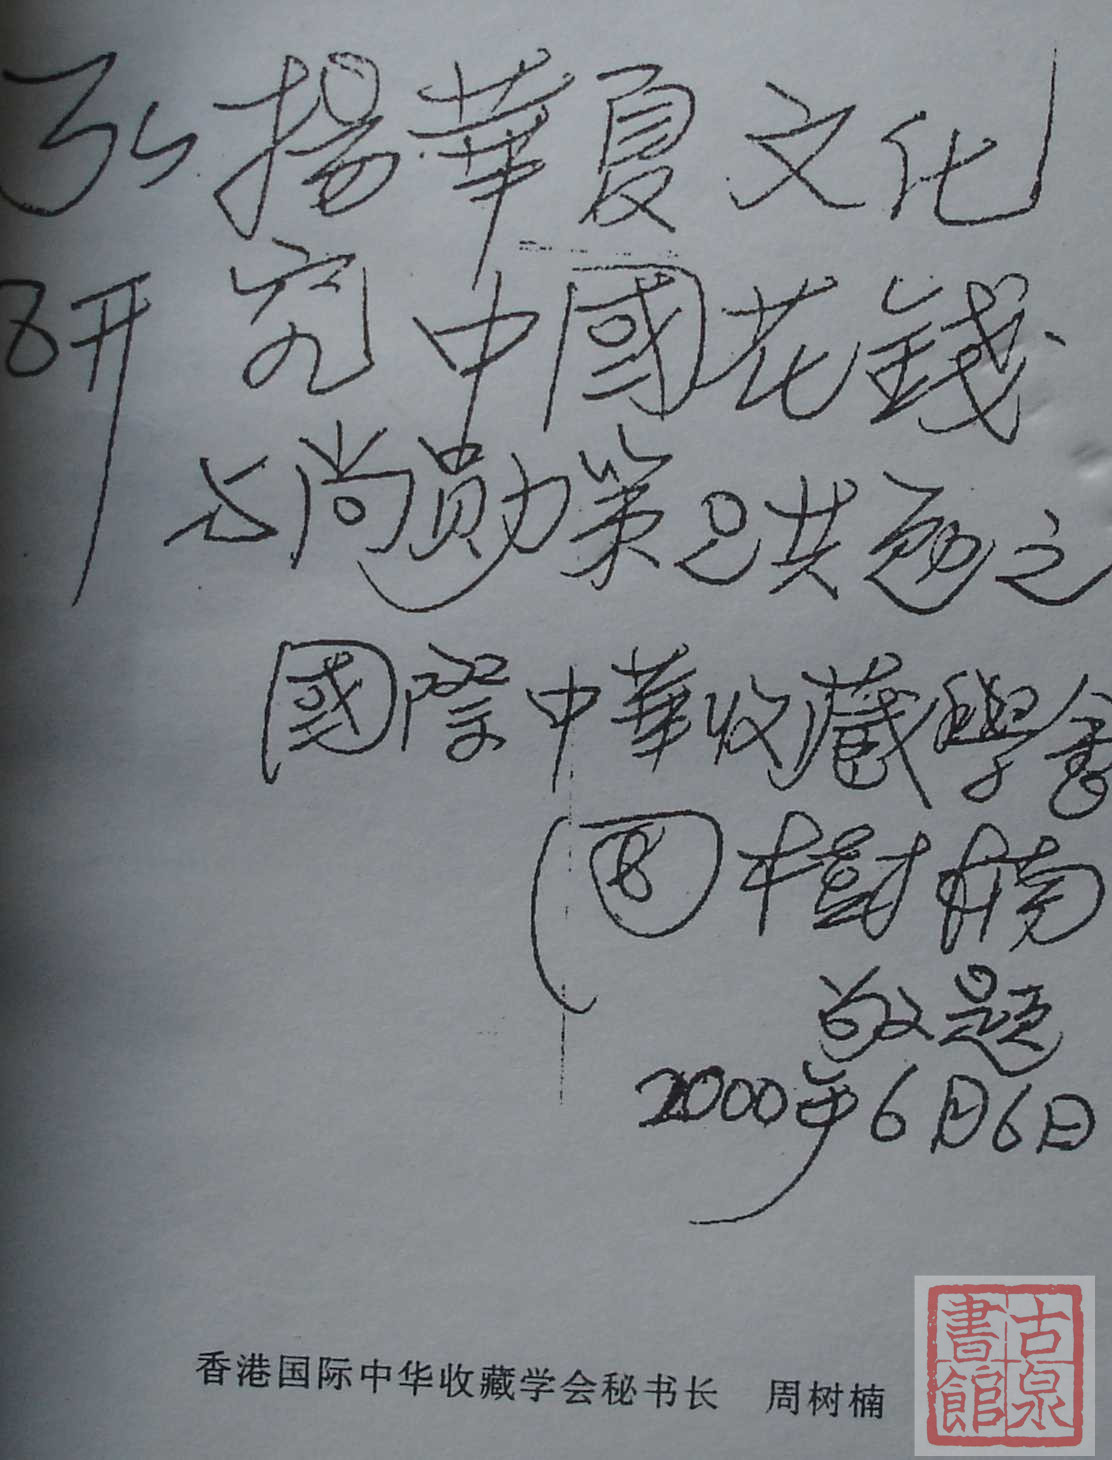 弘揚華夏文化
研究中國花錢
与尚勛策兄共勉之
國際中華收藏學會
周樹楠
敬題
2000年6月6日
香港国际中华收藏学会秘书长 周树楠
古泉
書館